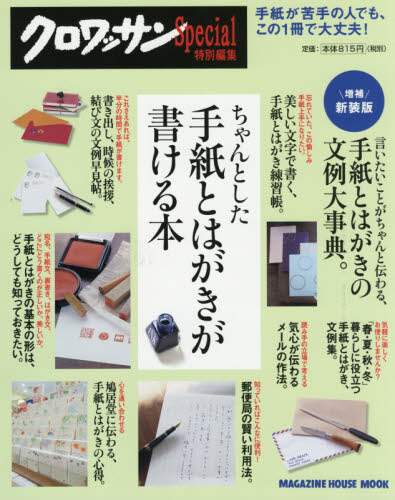 クロワッサン
Special
特別編集
手紙が苦手の人でも、
この1冊で大丈夫！
定価：本体815円〈税別〉
増補
新装版
言いたいことがちゃんと伝わる、
手紙とはがきの
文例大事典。
忘れていた、この愉しみ
手紙上手になりたい。
美しい文字で書く、
手紙とはがき練習帳。
ちゃんとした
手紙とはがきが
書ける本
これさえあれば、
半分の時間で手紙が書けます。
書き出し、時候の挨拶、
結び文の文例早見帖。
宛名、手紙文、裏書き、はがき文、
どこにどう書くのが正しいか、美しいか。
手紙とはがきの基本の形は、
どうしても知っておきたい。
気軽に楽しく
お便りしませんか？
「春・夏・秋・冬」
暮らしに役立つ
手紙とはがき、
文例集。
読み手の立場で考える
気心が伝わる
メールの作法。
知っていればこんなに便利！
郵便局の賢い利用法。
心を通い合わせる
鳩居堂に伝わる、
手紙とはがきの心得。
MAGAZINE HOUSE MOOK